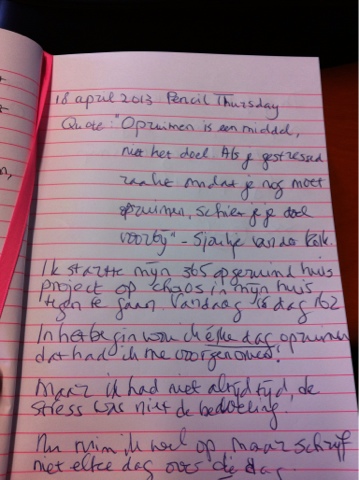 18 april 2013 Pencil Thursday
Quote: "Opruimen is een middel,
niet het doel. Als je gestressed
raakt omdat je nog moet
opruimen, schiet je je doel
voorbij" - Sjoukje van de Kolk.
Ik startte mijn 365 opgeruimd huis
project op chaos in mijn huis
tegen te gaan Vandaag is dag 162
In het begin wou ik elke dag opruimen
dat had ik me voorgenomen!
Maar ik had niet altijd tijd, de
stress was niet de bedoeling.
Nu ruim ik wel op, maar schrijf
niet elke dag over die dag